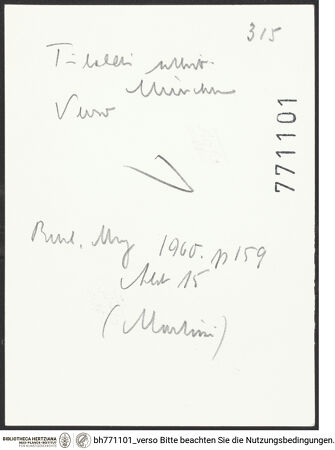 315
München
Verso
771101
Burl. Mag 1960. p 159
Abb 15
(Martini)
BIBLIOTHECA HERTZIANA
MAX-PLANCK-INSTITUT
FÜR KUNSTGESCHICHTE
bh771101_verso Bitte beachten Sie die Nutzungsbedingungen.